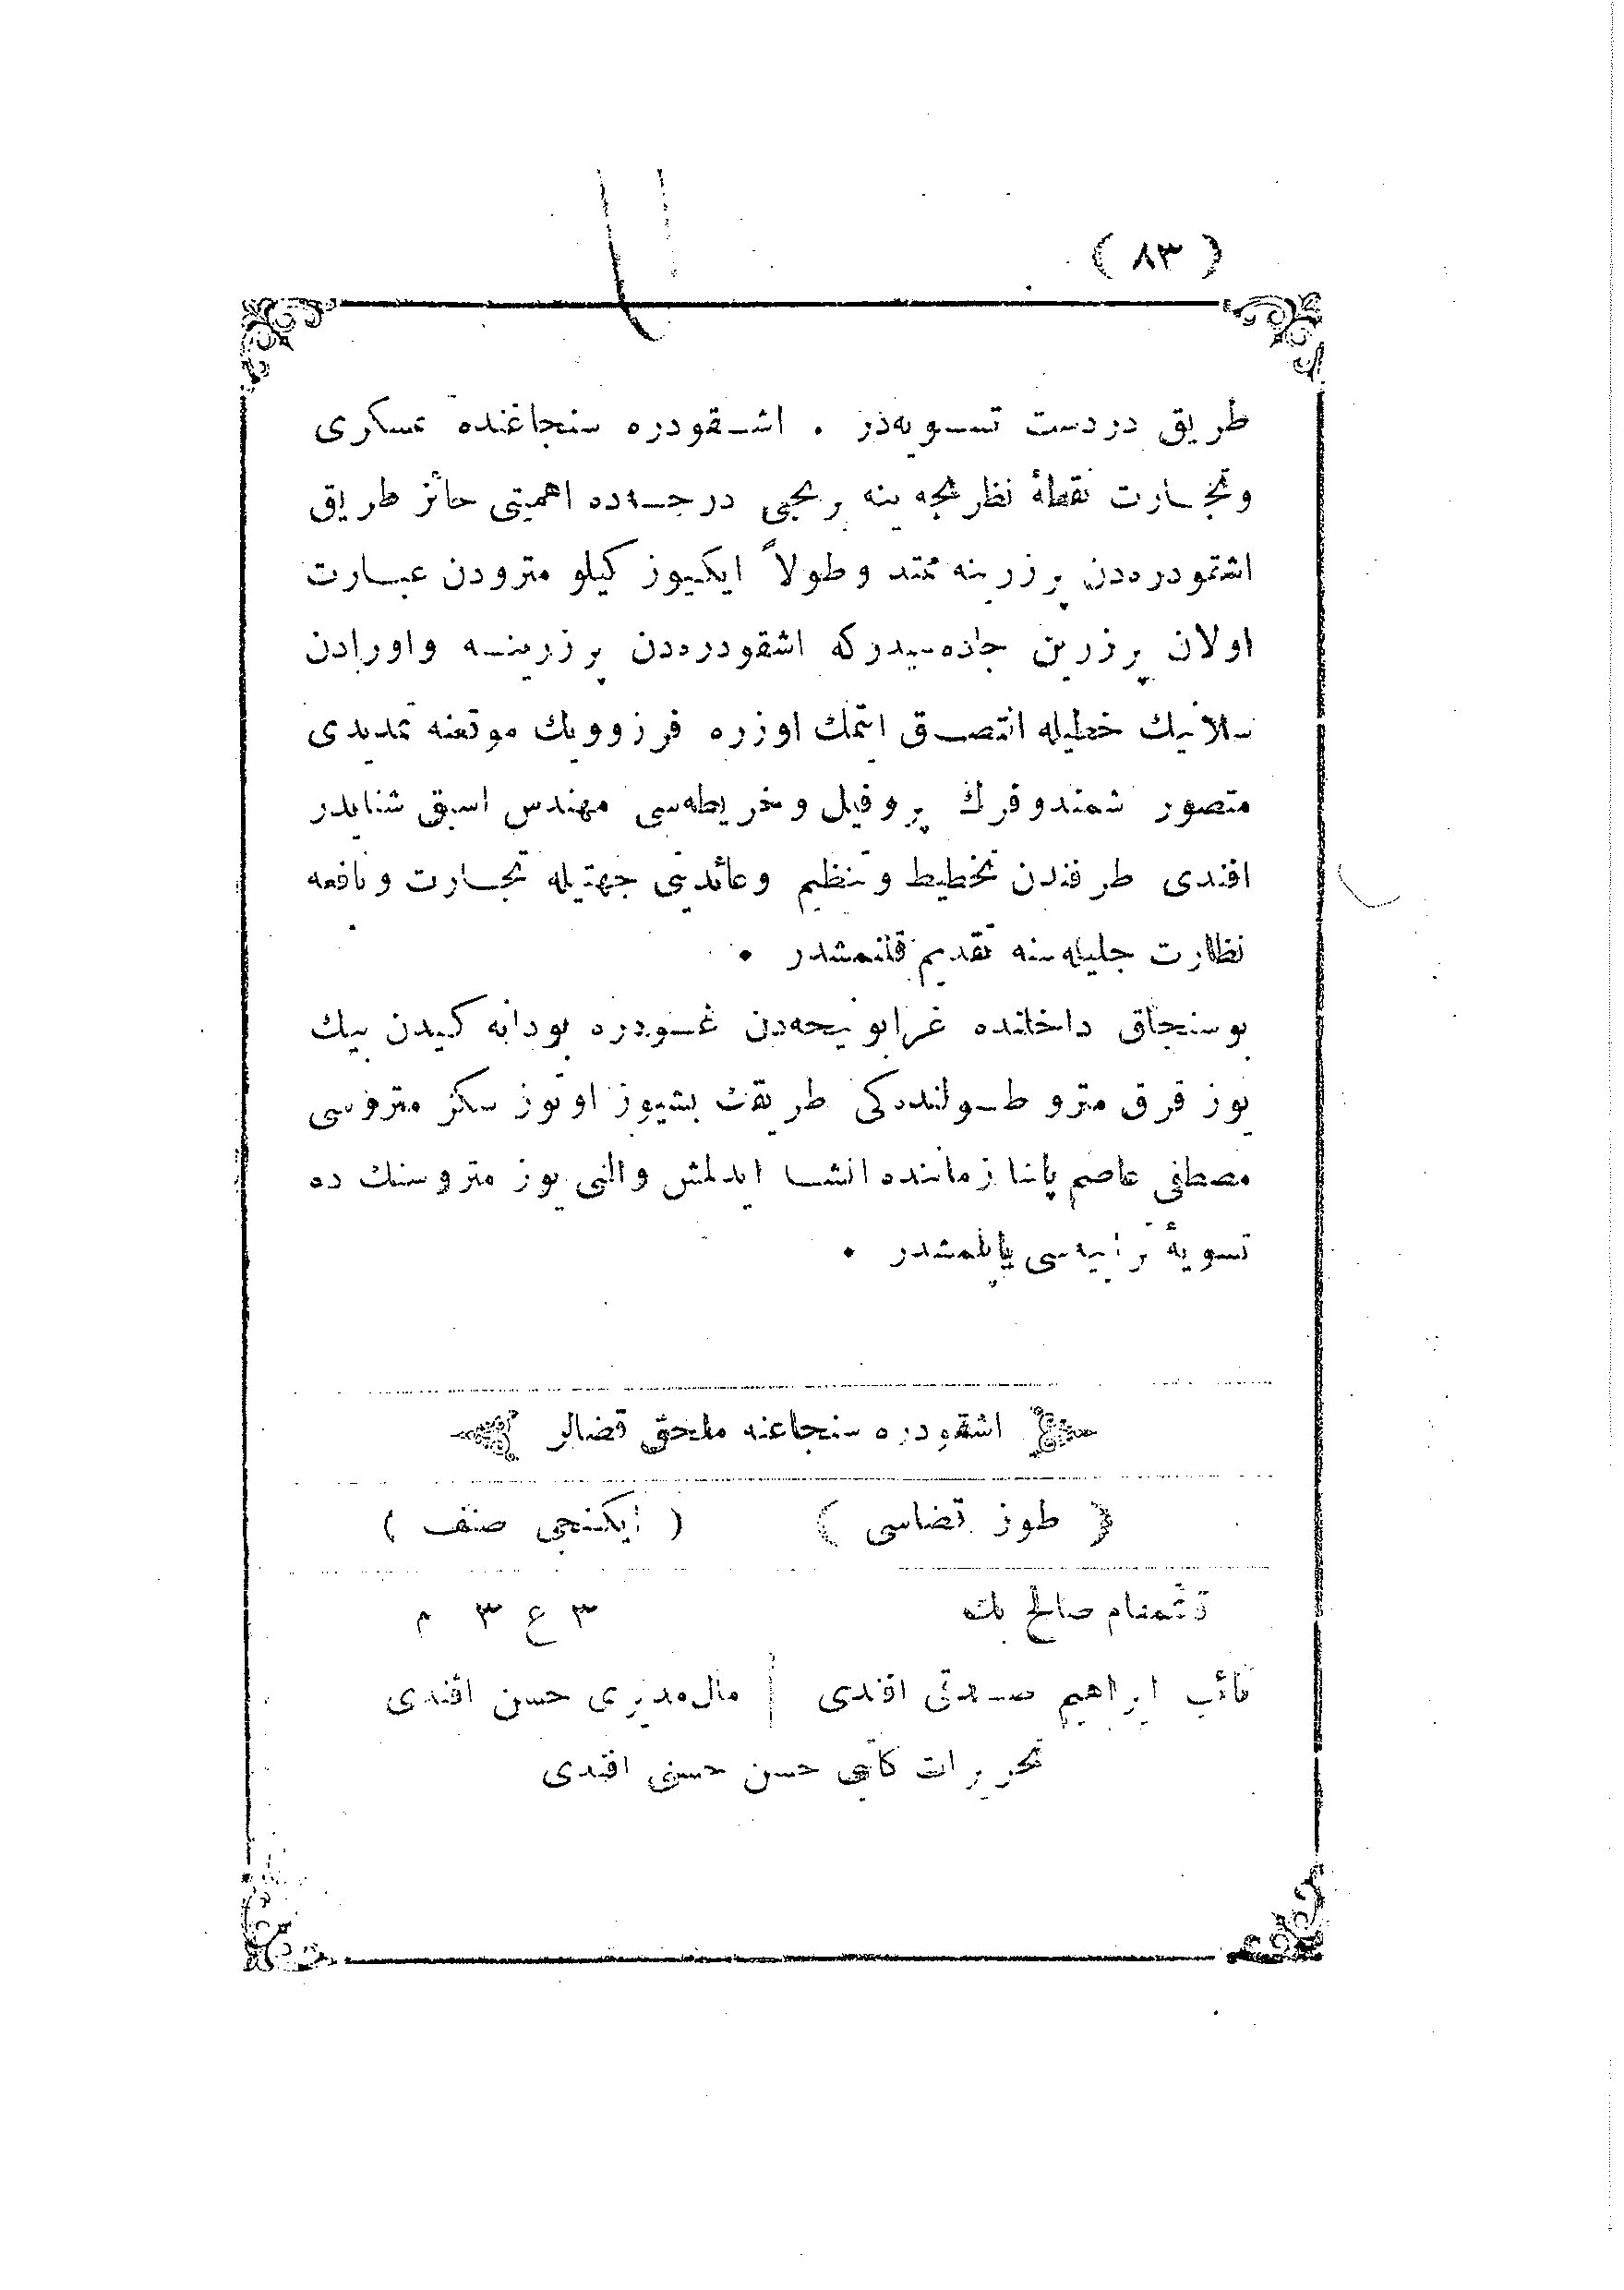 ( ٨٣ )
طریق دردست تسویه‌در . اشقودره سنجاغنده عسکری
وتجارت نقطهٔ نظرنجه ینه برنجی درجه‌ده اهمیتی حائز طریق
اشقودره‌دن پرزرینه ممتد وطولاً ایکیوز کیلو مترودن عبارت
اولان پرزرین جاده‌سیدرکه اشقودره‌دن پرزرینه واورادن
سلانیك خطیله التصاق ایتمك اوزره فرزوویك موقعنه تمدیدی
متصور شمندوفرك پروفیل وخریطه‌سی مهندس اسبق شنایدر
افندی طرفندن تخطیط وتنظیم وعائدیتی جهتیله تجارت ونافعه
نظارت جلیله‌سنه تقدیم قلنمشدر .
بوسنجاق داخلنده غرابونیجه‌دن غودره بودانه کیدن بیك
یوز قرق مترو طولنده‌کی طریقك بشیوز اوتوز سکز متروسی
مصطفی عاصم پاشا زماننده انشا ایدلمش والتی یوز متروسنك ده
تسویهٔ ترابیه‌سی یاپلمشدر .
اشقودره سنجاغنه ملحق قضالر
( طوز قضاسی ) ( ایکنجی صنف )
قائممقام صالح بك ٣ ع ٣ م
نائب ابراهیم صدقی افندی | مال‌مدیری حسن افندی
تحریرات کاتبی حسن حسنی افندی